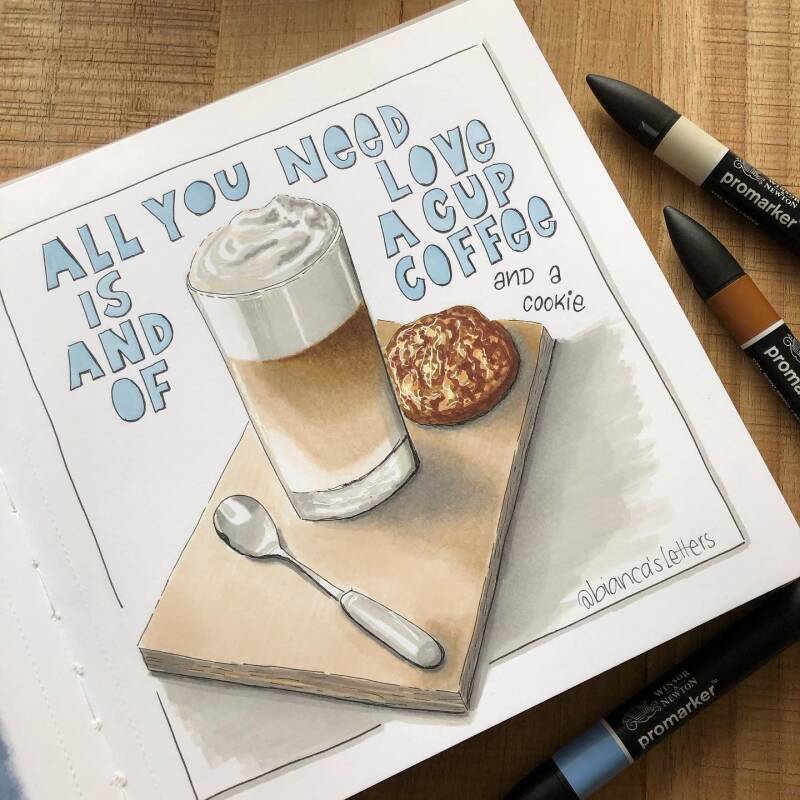 ALL YOU NEED
IS LOVE
AND A CUP
OF COFFEE
and a
cookie
@bianca'sLetters
WINSOR
& NEWTON
promarker
proma
WINSOR
& NEWTON
promarker™